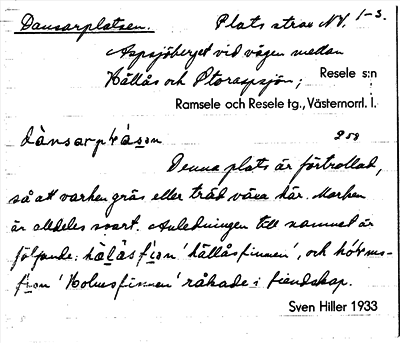 Dansarplatsen. Plats strax NV. 1-3.
Aspsjöberget vid vägen mellan
Hällås och Storaspsjön; Resele s:n
Ramsele och Resele tg., Västernorrl. l.
dànsarp 250
Denna plats är förtrollad,
så att varken gräs eller träd växa här. Marken
är alldeles svart. Anledningen till namnet är
följande: 'hällåsfinnen', och
'Holmsfinnen' råkade i fiendskap.
Sven Hiller 1933